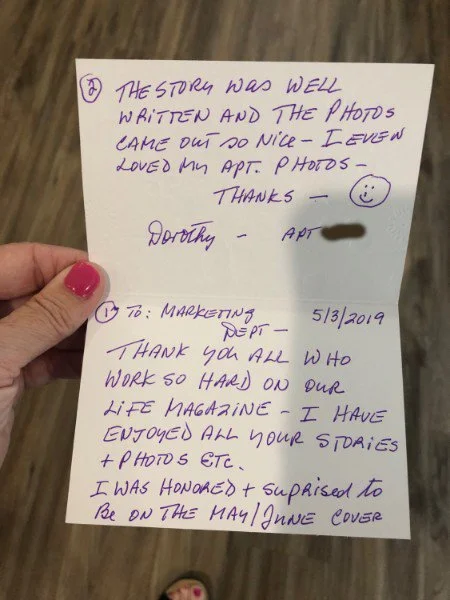 ① TO: MARKETING 5/3/2019
DEPT —
THANK YOU ALL WHO
WORK SO HARD ON OUR
LIFE MAGAZINE - I HAVE
ENJOYED ALL YOUR STORIES
+ PHOTOS ETC.
I WAS HONORED + SUPRISED to
Be ON THE MAY/JUNE COVER
② THE STORY WAS WELL
WRITTEN AND THE PHOTOS
CAME OUT SO NICE - I EVEN
LOVED MY APT. PHOTOS -
THANKS —
Dorothy - APT